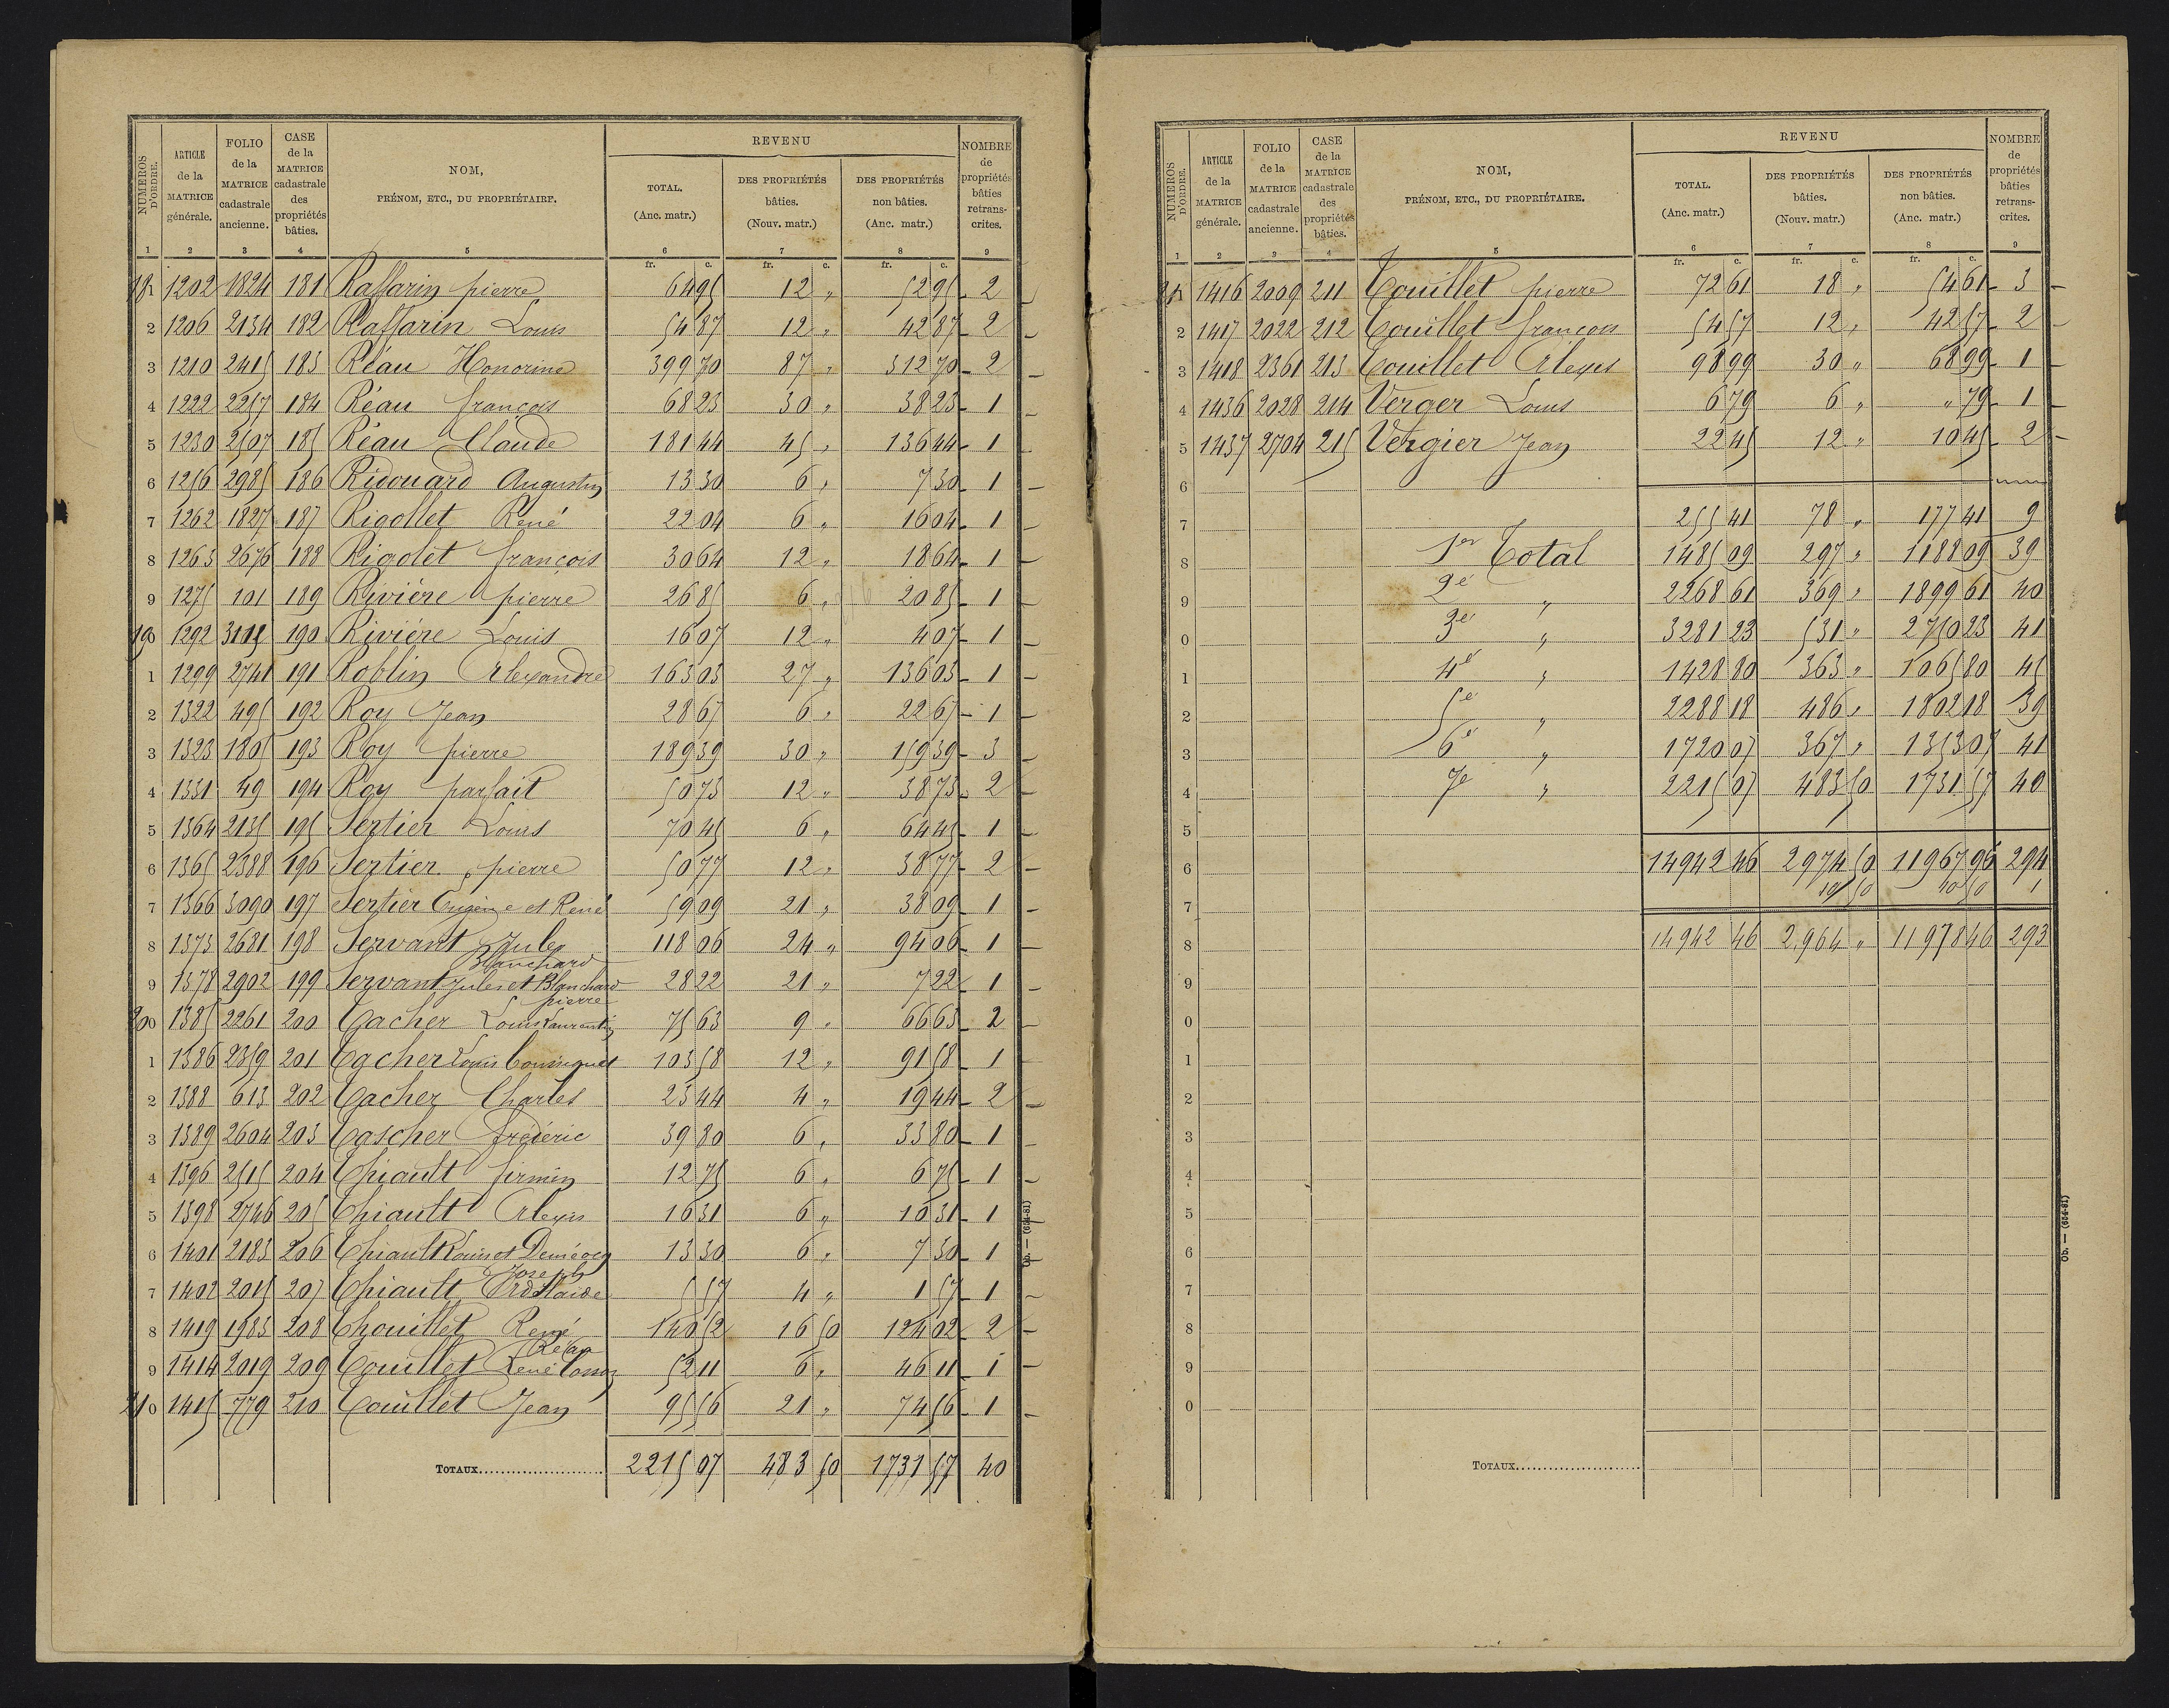 NUMÉROS D'ORDRE. | ARTICLE de la MATRICE générale. | FOLIO de la MATRICE cadastrale ancienne. | CASE de la MATRICE cadastrale des propriétés bâties. | NOM, PRÉNOM, ETC., DU PROPRIÉTAIRE. | REVENU | NOMBRE de propriétés bâties retranscrites.
TOTAL. (Anc. matr.) | DES PROPRIÉTÉS bâties. (Nouv. matr.) | DES PROPRIÉTÉS non bâties. (Anc. matr.)
1 2 3 4 5 6 7 8 9
fr. c. fr. c. fr. c.
181 1202 1824 181 Raffarin pierre 64 95 12 " 52 95 2
2 1206 2134 182 Raffarin Louis 54 87 12 " 42 87 2
3 1210 2415 183 Réau Honorine 399 70 87 " 312 70 2
4 1222 2257 184 Réau françois 68 23 30 " 38 23 1
5 1230 2507 185 Réau Claude 181 44 45 " 136 44 1
6 1256 2985 186 Ridouard Augustin 13 30 6 " 7 30 1
7 1262 1827 187 Rigollet René 22 04 6 " 16 04 1
8 1263 2676 188 Rigolet françois 30 64 12 " 18 64 1
9 1275 101 189 Rivière pierre 26 85 6 " 20 85 1
190 1292 190 Rivière Louis 16 07 12 " 4 07 1
1 1299 2741 191 Roblin Alexandre 163 03 27 " 136 03 1
2 1322 495 192 Roy Jean 28 67 6 " 22 67 1
3 1323 1805 193 Roy pierre 189 39 30 " 159 39 3
4 1331 49 194 Roy parfait 50 73 12 " 38 73 2
5 1364 2135 195 Sertier Louis 70 45 6 " 64 45 1
6 1365 2388 196 Sertier pierre 50 77 12 " 38 77 2
7 1366 3090 197 Sertier Eugène et René 59 09 21 " 38 09 1
8 1373 2681 198 Servant Jules 118 06 24 " 94 06 1
Blanchard
9 1378 2902 199 Servant Jules et Blanchard 28 22 21 " 7 22 1
pierre
200 1385 2261 200 Tacher Louis Laurentin 75 63 9 " 66 63 2
1 1386 2359 201 Tacher Louis 103 58 12 " 91 58 1
2 1388 613 202 Tacher Charles 23 44 4 " 19 44 2
3 1389 2604 203 Tascher frédéric 39 80 6 " 33 80 1
4 1396 2515 204 Thiault firmin 12 75 6 " 6 75 1
5 1398 2746 205 Thiault Alexis 16 31 6 " 10 31 1
6 1401 2183 206 Thiault Louis et 13 30 6 " 7 30 1
Joseph
7 1402 2015 207 Thiault Adélaïde 5 57 4 " 1 57 1
8 1419 1983 208 Thouillet René 140 52 16 50 124 02 2
9 1414 2019 209 Touillet René 52 11 6 " 46 11 1
210 1415 779 210 Touillet Jean 95 56 21 " 74 56 1
TOTAUX 2215 07 483 50 1731 57 40
Ob. — (634-81)
NUMÉROS D'ORDRE. | ARTICLE de la MATRICE générale. | FOLIO de la MATRICE cadastrale ancienne. | CASE de la MATRICE cadastrale des propriétés bâties. | NOM, PRÉNOM, ETC., DU PROPRIÉTAIRE. | REVENU | NOMBRE de propriétés bâties retranscrites.
TOTAL. (Anc. matr.) | DES PROPRIÉTÉS bâties. (Nouv. matr.) | DES PROPRIÉTÉS non bâties. (Anc. matr.)
1 2 3 4 5 6 7 8 9
fr. c. fr. c. fr. c.
211 1416 2009 211 Touillet pierre 72 61 18 " 54 61 3
2 1417 2022 212 Touillet françois 54 57 12 " 42 57 2
3 1418 2361 213 Touillet Alexis 98 99 30 " 68 99 1
4 1436 2028 214 Verger Louis 6 79 6 " " 79 1
5 1437 2704 215 Vergier Jean 22 45 12 " 10 45 2
6
7 255 41 78 " 177 41 9
8 1er Total 1485 09 297 " 1188 09 39
9 2e " 2268 61 369 " 1899 61 40
0 3e " 3281 23 531 " 2750 23 41
1 4e " 1428 80 363 " 1065 80 45
2 5e " 2288 18 486 " 1802 18 39
3 6e " 1720 07 367 " 1353 07 41
4 7e " 2215 07 483 50 1731 57 40
5
6 14942 46 2974 50 11967 96 294
10 50 10 50 1
7
8 14942 46 2,964 " 11978 46 293
9
0
1
2
3
4
5
6
7
8
9
0
TOTAUX
Ob. — (634-81)